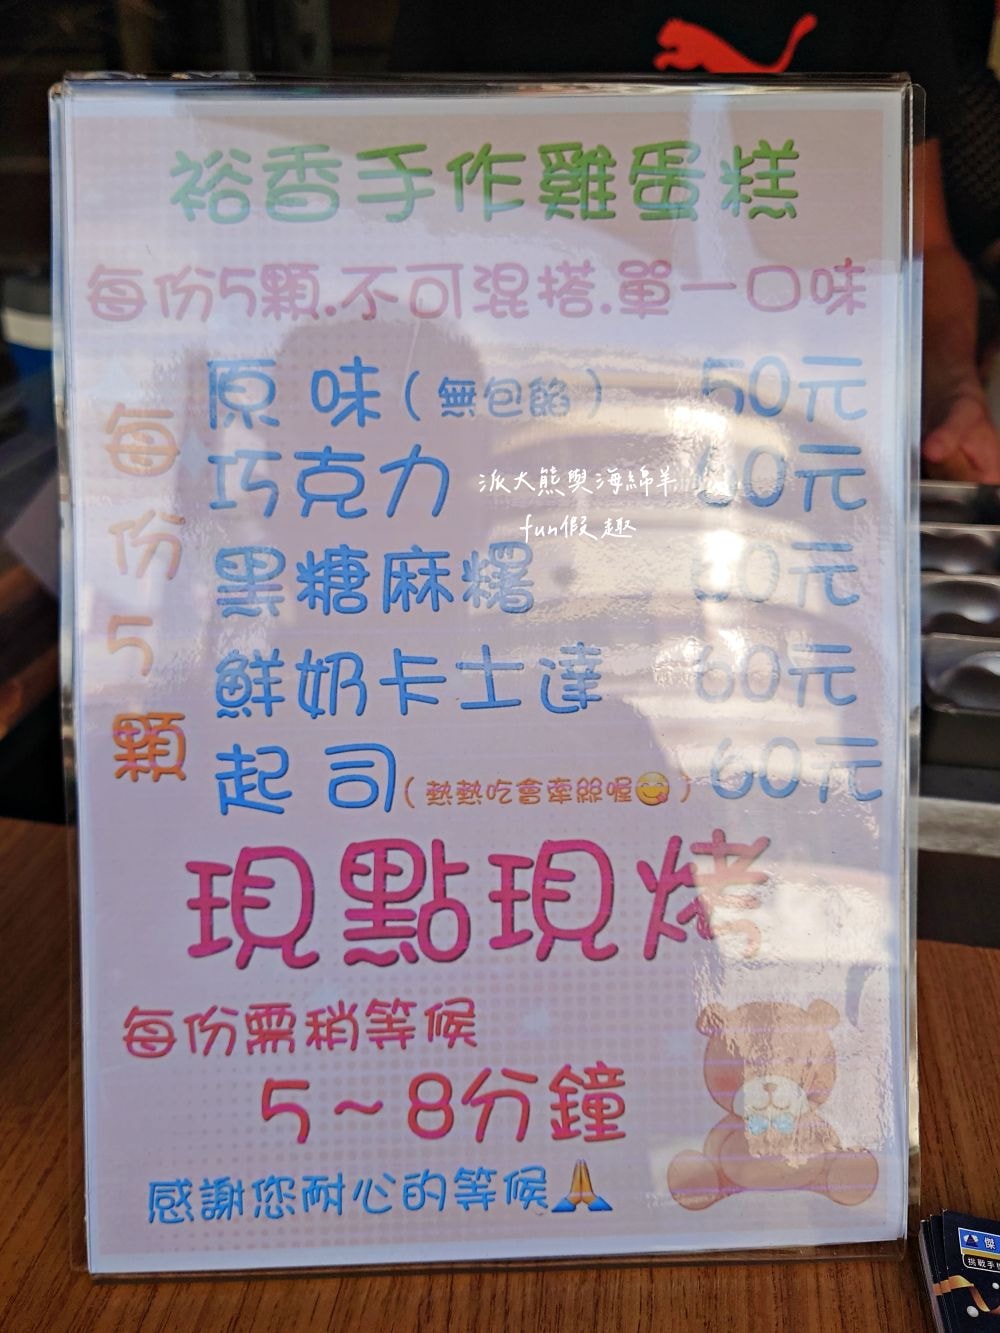 裕香手作雞蛋糕
每份5顆.不可混搭.單一口味
每份5顆
原味(無包餡) 50元
巧克力 60元
派大熊與海綿羊
fun假趣
黑糖麻糬 60元
鮮奶卡士達 60元
起司(熱熱吃會牽絲喔😋) 60元
現點現烤
每份需稍等候
5~8分鐘
感謝您耐心的等候🙏
傑
挑戰手